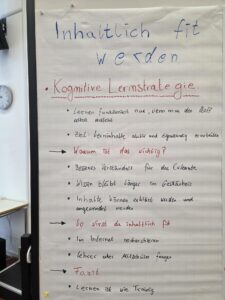 Inhaltlich fit
werden
• Kognitive Lernstrategie
• Lernen funktioniert nur, wenn man den
• Ziel: Lerninhalte aktiv und verarbeiten
→ Warum ist das wichtig?
• Besseres Verständnis für das
• Wissen bleibt länger im Gedächtnis
• Inhalte können erklärt werden und
angewendet werden
→ So wirst du inhaltlich fit
• Im Internet recherchieren
• Lehrer oder Mitschüler fragen
→ Fazit
• Lernen ist wie Training